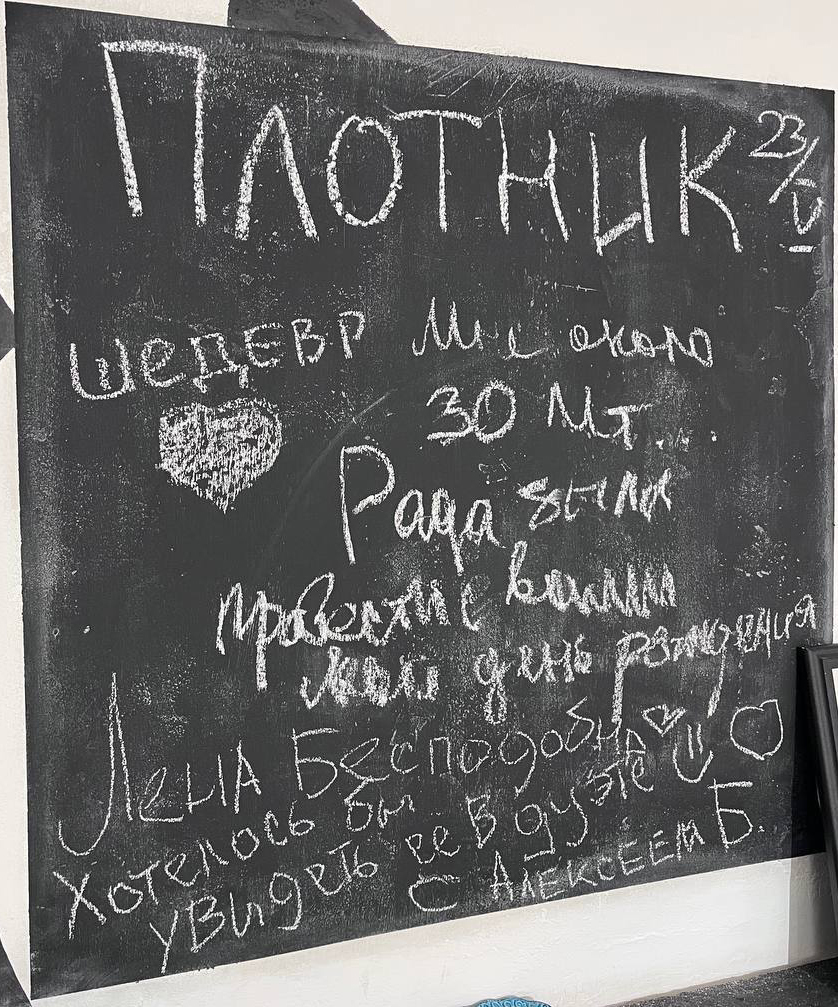 ПЛОТНИК 23/V
ШЕДЕВР
Мне около
30 лет.
Рада была
провести с вами
мой день рождения
Лена Бесподобна
Хотелось бы
увидеть ее в дуэте
с Алексеем Б.